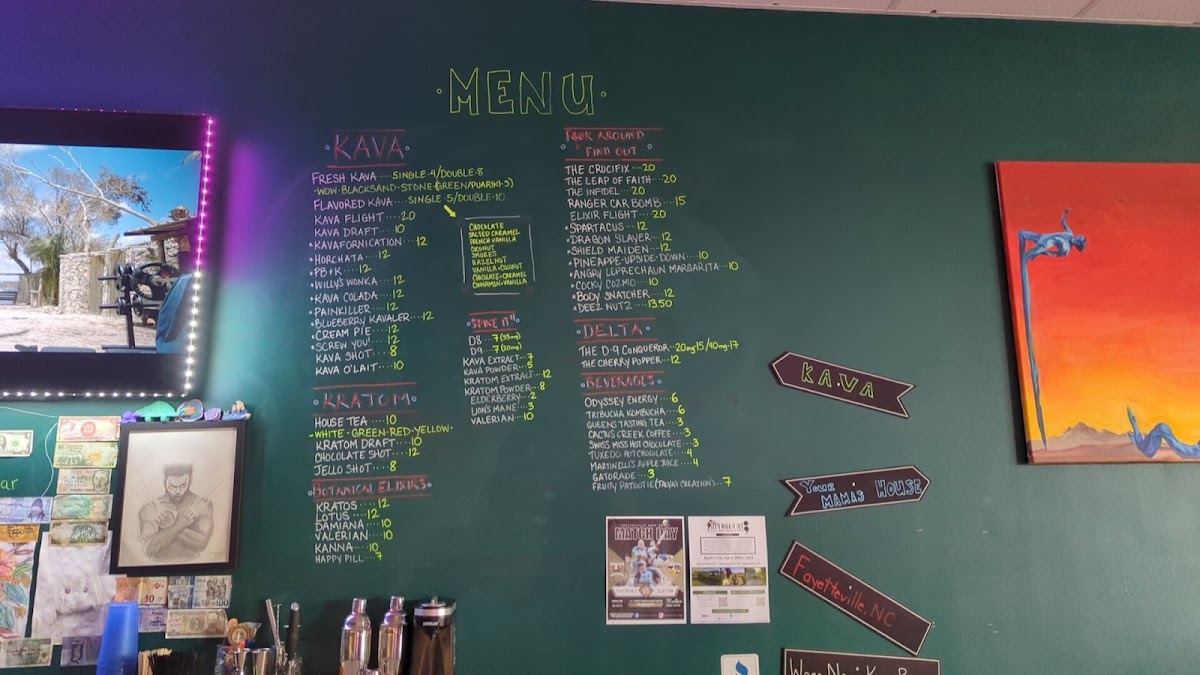 MENU
KAVA
FRESH KAVA....SINGLE-4/DOUBLE-8
-WOW-BLACKSAND-STONE (GREEN/PUARIKI-5)
FLAVORED KAVA....SINGLE-5/DOUBLE-10
KAVA FLIGHT....20
KAVA DRAFT....10
•KAVAFORNICATION....12
•HORCHATA....12
•PB+K....12
•WILLY'S WONKA....12
•KAVA COLADA....12
•PAINKILLER....12
•BLUEBERRY KAVALER....12
•CREAM PIE....12
•SCREW YOU!....12
KAVA SHOT....8
KAVA O'LAIT....10
CHOCOLATE
SALTED CARAMEL
FRENCH VANILLA
COCONUT
SMORES
HAZELNUT
VANILLA+COCONUT
CHOCOLATE+CARAMEL
CINNAMON+VANILLA
SPIKE IT!!
D8...7 (33mg)
D9...7 (10mg)
KAVA EXTRACT...7
KAVA POWDER...5
KRATOM EXTRACT...12
KRATOM POWDER...8
ELDERBERRY...2
LION'S MANE...3
VALERIAN...10
KRATOM
HOUSE TEA....10
-WHITE-GREEN-RED-YELLOW-
KRATOM DRAFT....10
CHOCOLATE SHOT....12
JELLO SHOT....8
BOTANICAL ELIXIRS
KRATOS....12
LOTUS....12
DAMIANA....10
VALERIAN....10
KANNA....10
HAPPY PILL....7
AROUND
FIND OUT
THE CRUCIFIX....20
THE LEAP OF FAITH....20
THE INFIDEL....20
RANGER CAR BOMB....15
ELIXIR FLIGHT....20
•SPARTACUS....12
•DRAGON SLAYER....12
•SHIELD MAIDEN....12
•PINEAPPE-UPSIDE-DOWN....10
•ANGRY LEPRECHAUN MARGARITA....10
•COCKY COZMO....10
•BODY SNATCHER....12
•DEEZ NUTZ....13.50
DELTA
THE D-9 CONQUEROR...20mg-15/40mg-17
THE CHERRY POPPER....12
BEVERAGES
ODYSSEY ENERGY...6
TRIBUCHA KOMBUCHA...6
QUEENS TASTING TEA...3
CACTUS CREEK COFFEE...3
SWISS MISS HOT CHOCOLATE...3
TUXEDO HOT CHOCOLATE....4
MARTINELLI'S APPLE JUICE....4
GATORADE....3
FRUITY PATOOTIE (TALYA'S CREATION)...7
KAVA
YOUR MAMA'S HOUSE
Fayetteville, NC
MATCH DAY